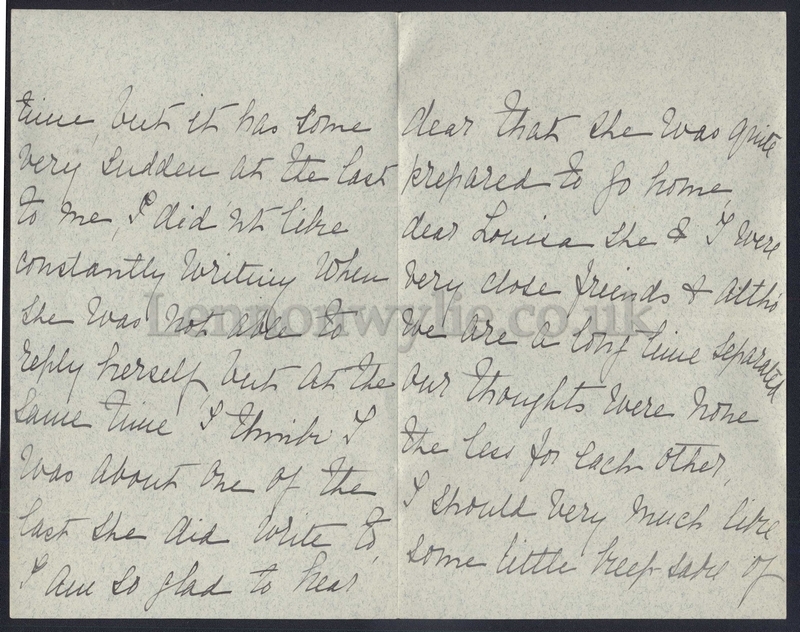 time, but it has some
very sudden at the last
to me, I did 'nt like
constantly writing when
she was not able to
reply herself, but at the
same time I think I
was about one of the
last she did write to,
I am so glad to hear
dear that she was quite
prepared to go home,
dear Louisa she & I were
very close friends & altho
we are a long time separated
our thoughts were none
the less for each other,
I should very much like
some little keep-sake of
Lennonwylie.co.uk